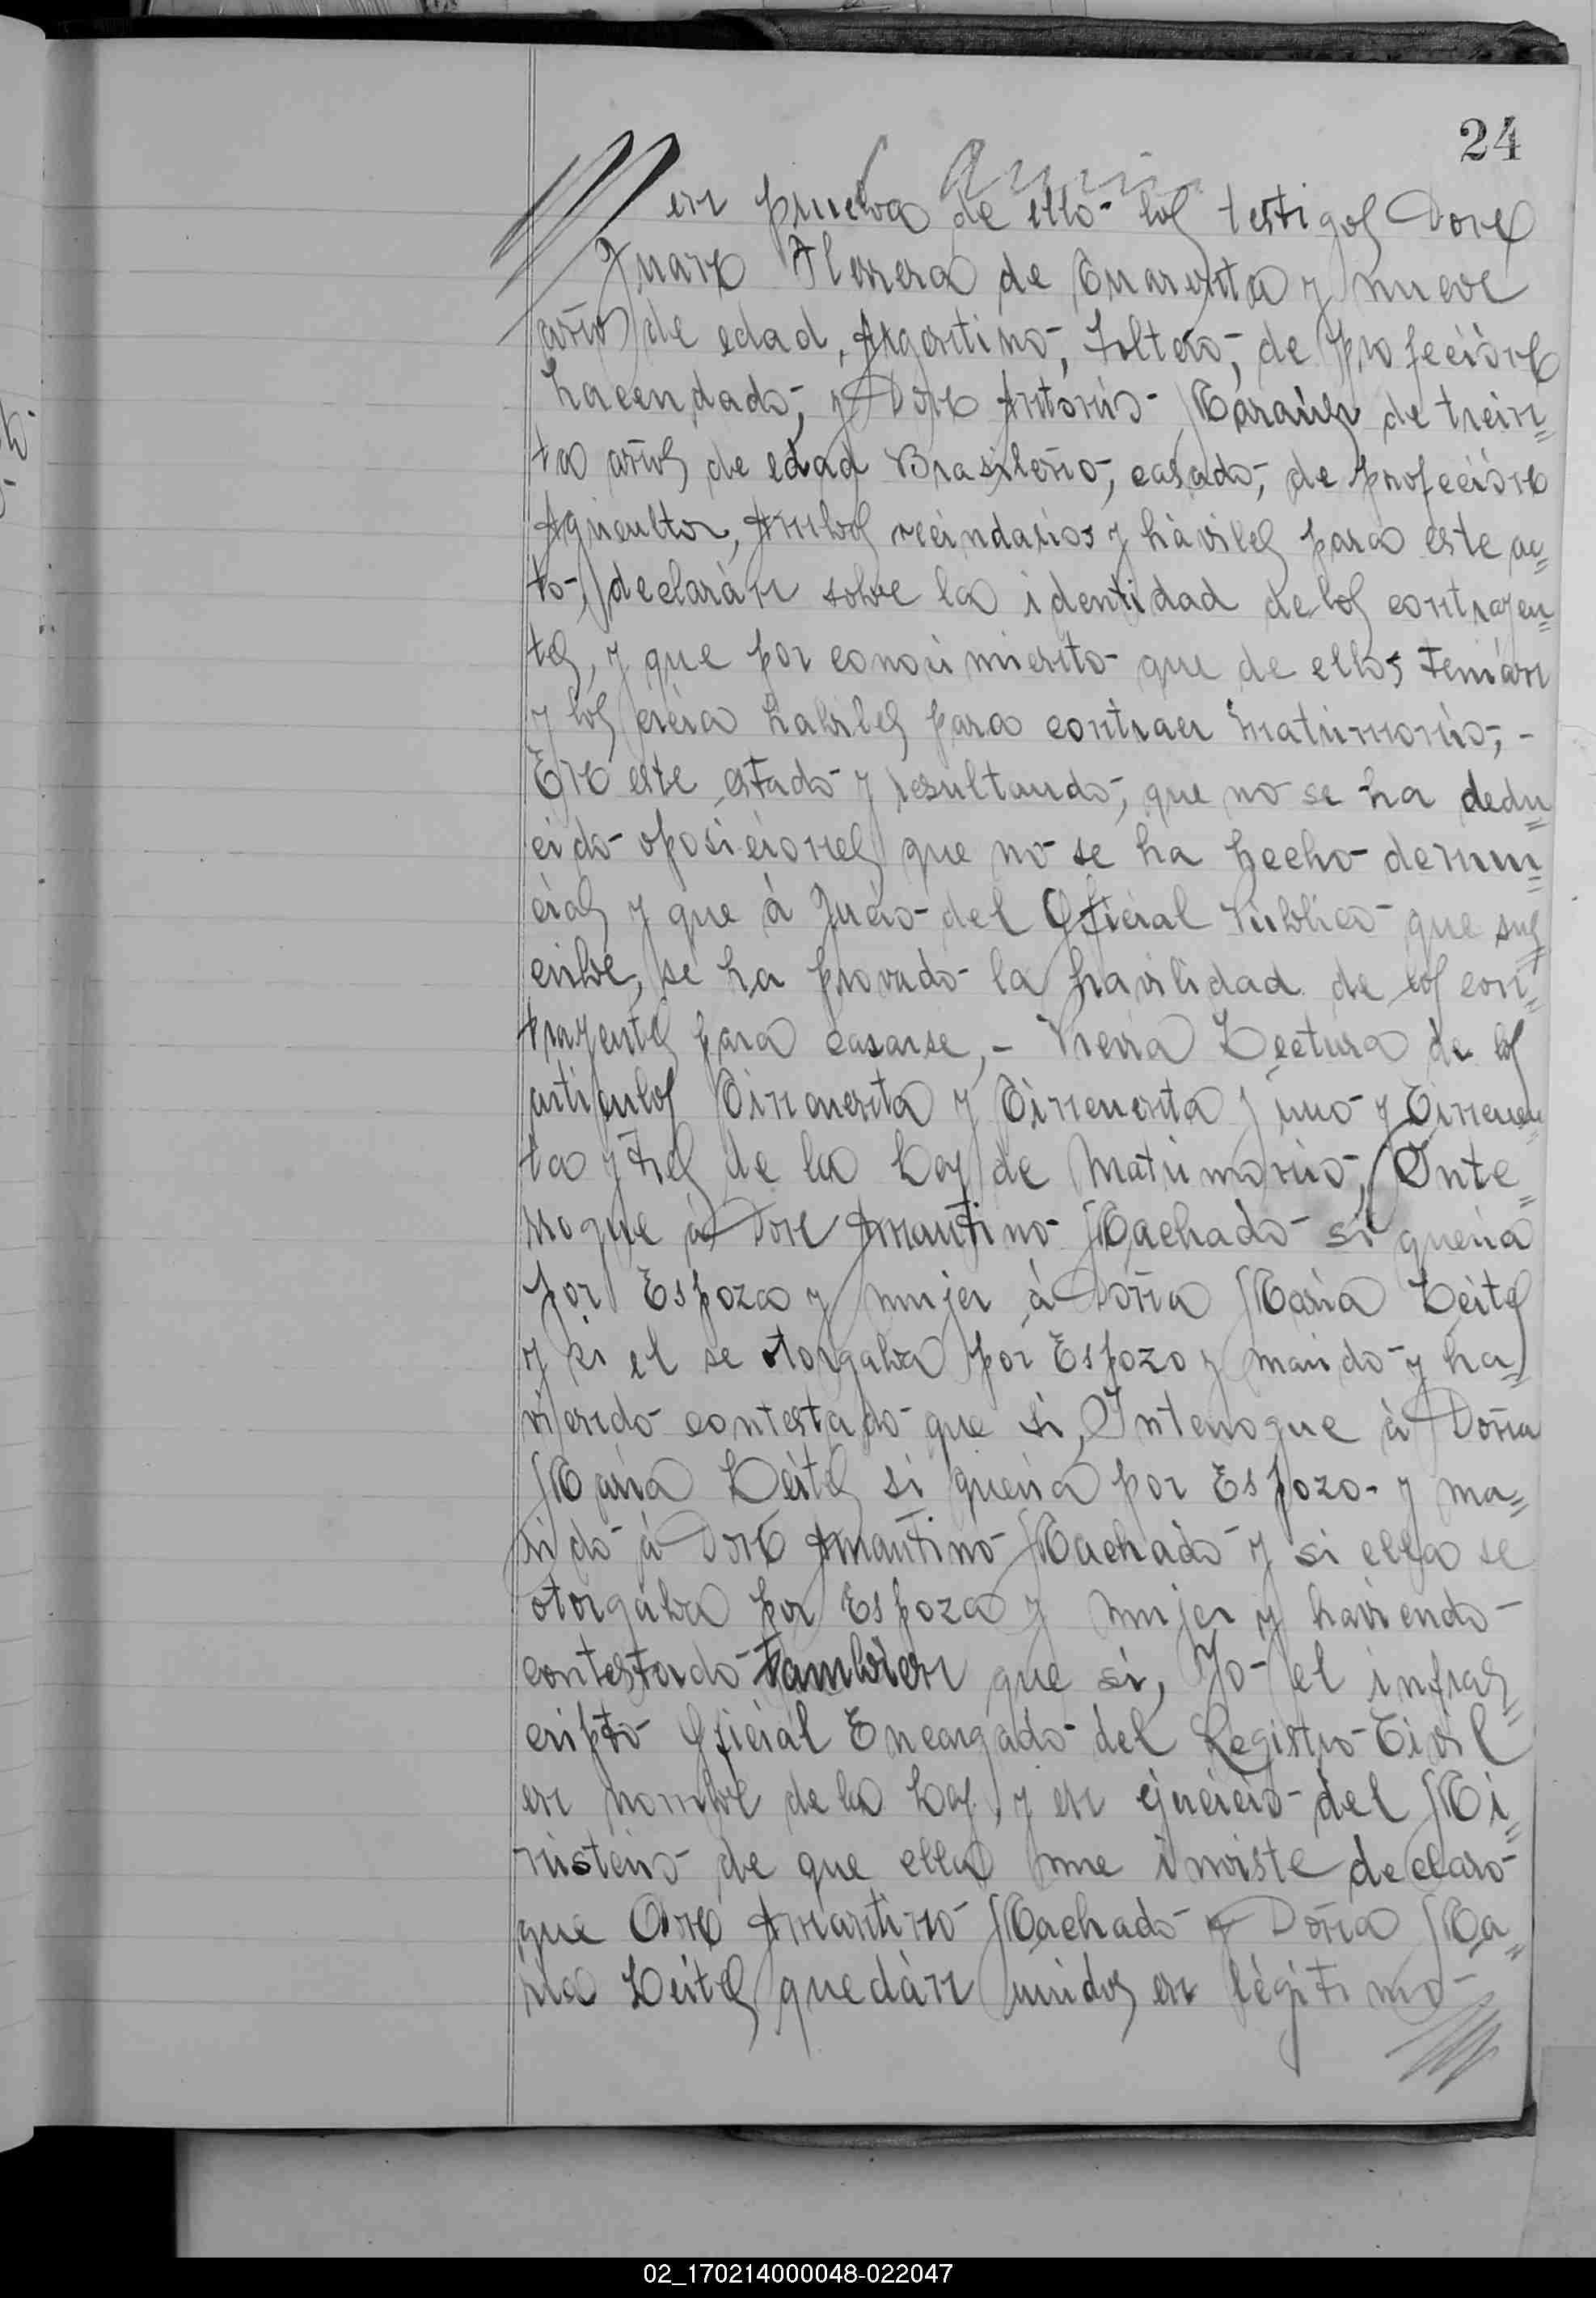 24
en prueva de ello los testigos Don
Juan Herrera de Cuarenta y nueve
años de edad, Argentino, Soltero, de profecion
hacendado, y Don Antonio de trein=
ta años de edad Brasilero, casado, de profecion
Agricultor, Ambos vecindarios y hàviles para este ac=
to, declaràn sobre la identidad de los contrayen=
tes, y que por conocimiento que de ellos tenian
y los creia habiles para contraer matrimonio, -
En este estado y resultando, que no se ha dedu=
cido oposiciones que no se ha hecho denun=
cias y que à Jucio del Oficial Publico que sus=
cribe, se ha provado la havilidad de los con=
trayentes para casarse, - Previa Lectura de los
articulos Cincuenta y Cincuenta y uno y Cincuen=
ta y tres de la Ley de Matrimonio, Inte=
rrogue à Don Amantino Machado si queria
por Espoza y mujer à Doña Maria Leites
y si el se otorgaba por Espozo y marido y ha=
viendo contestado que si, Interrogue à Doña
Maria Leites si queria por Espozo y ma=
rido à Don Amantino Machado y si ella se
otorgaba por Espoza y mujer y haviendo
contestado tambien que si, Yo el infras=
cripto Oficial Encargado del Registro Civil
en nombre de la Ley, y en ejercicio del Mi=
nisterio de que ella me inviste declaro
que Don Amantino Machado y Doña Ma=
ria Leites quedàn unidos en légitimo
02_170214000048-022047